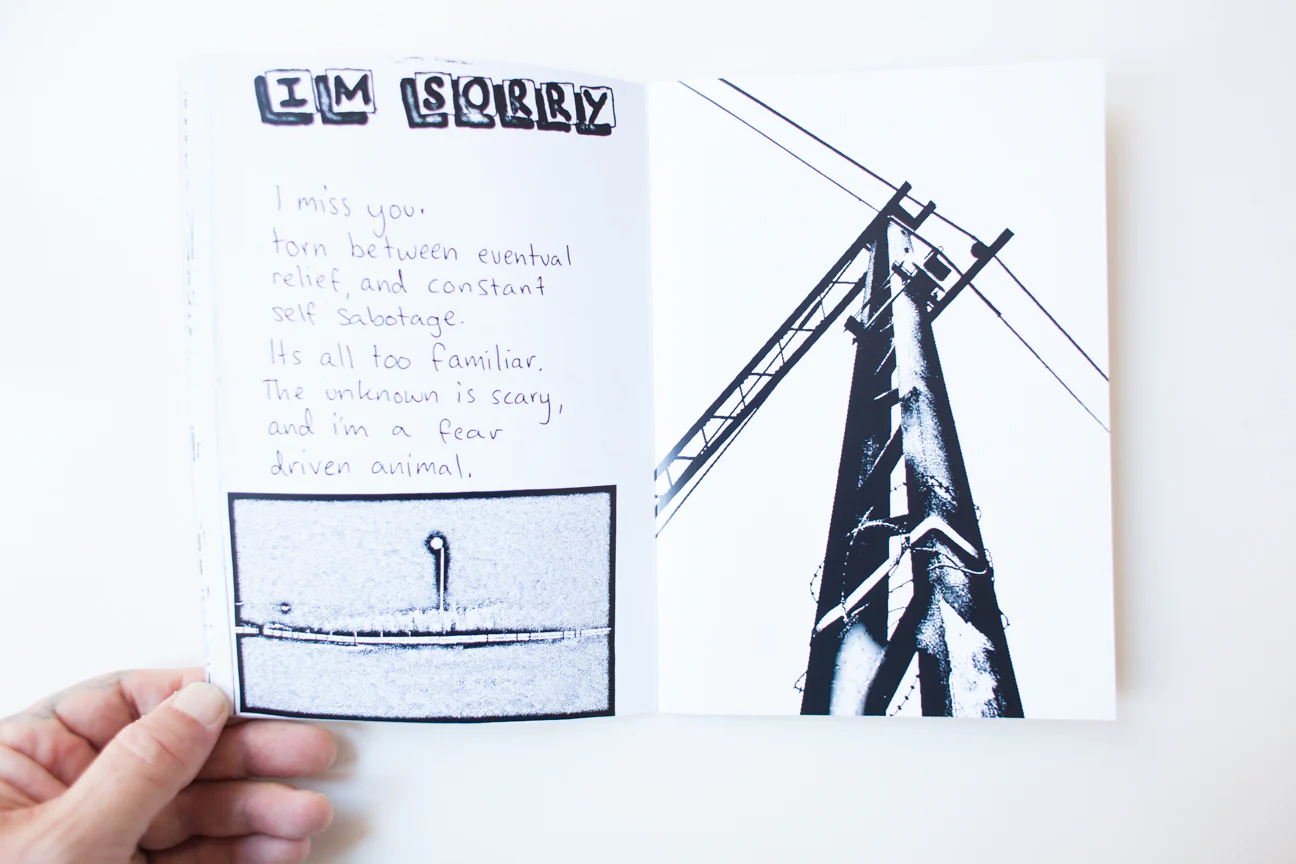 IM SORRY
I miss you.
torn between eventual
relief, and constant
self sabotage.
Its all too familiar.
The unknown is scary,
and i'm a fear
driven animal.